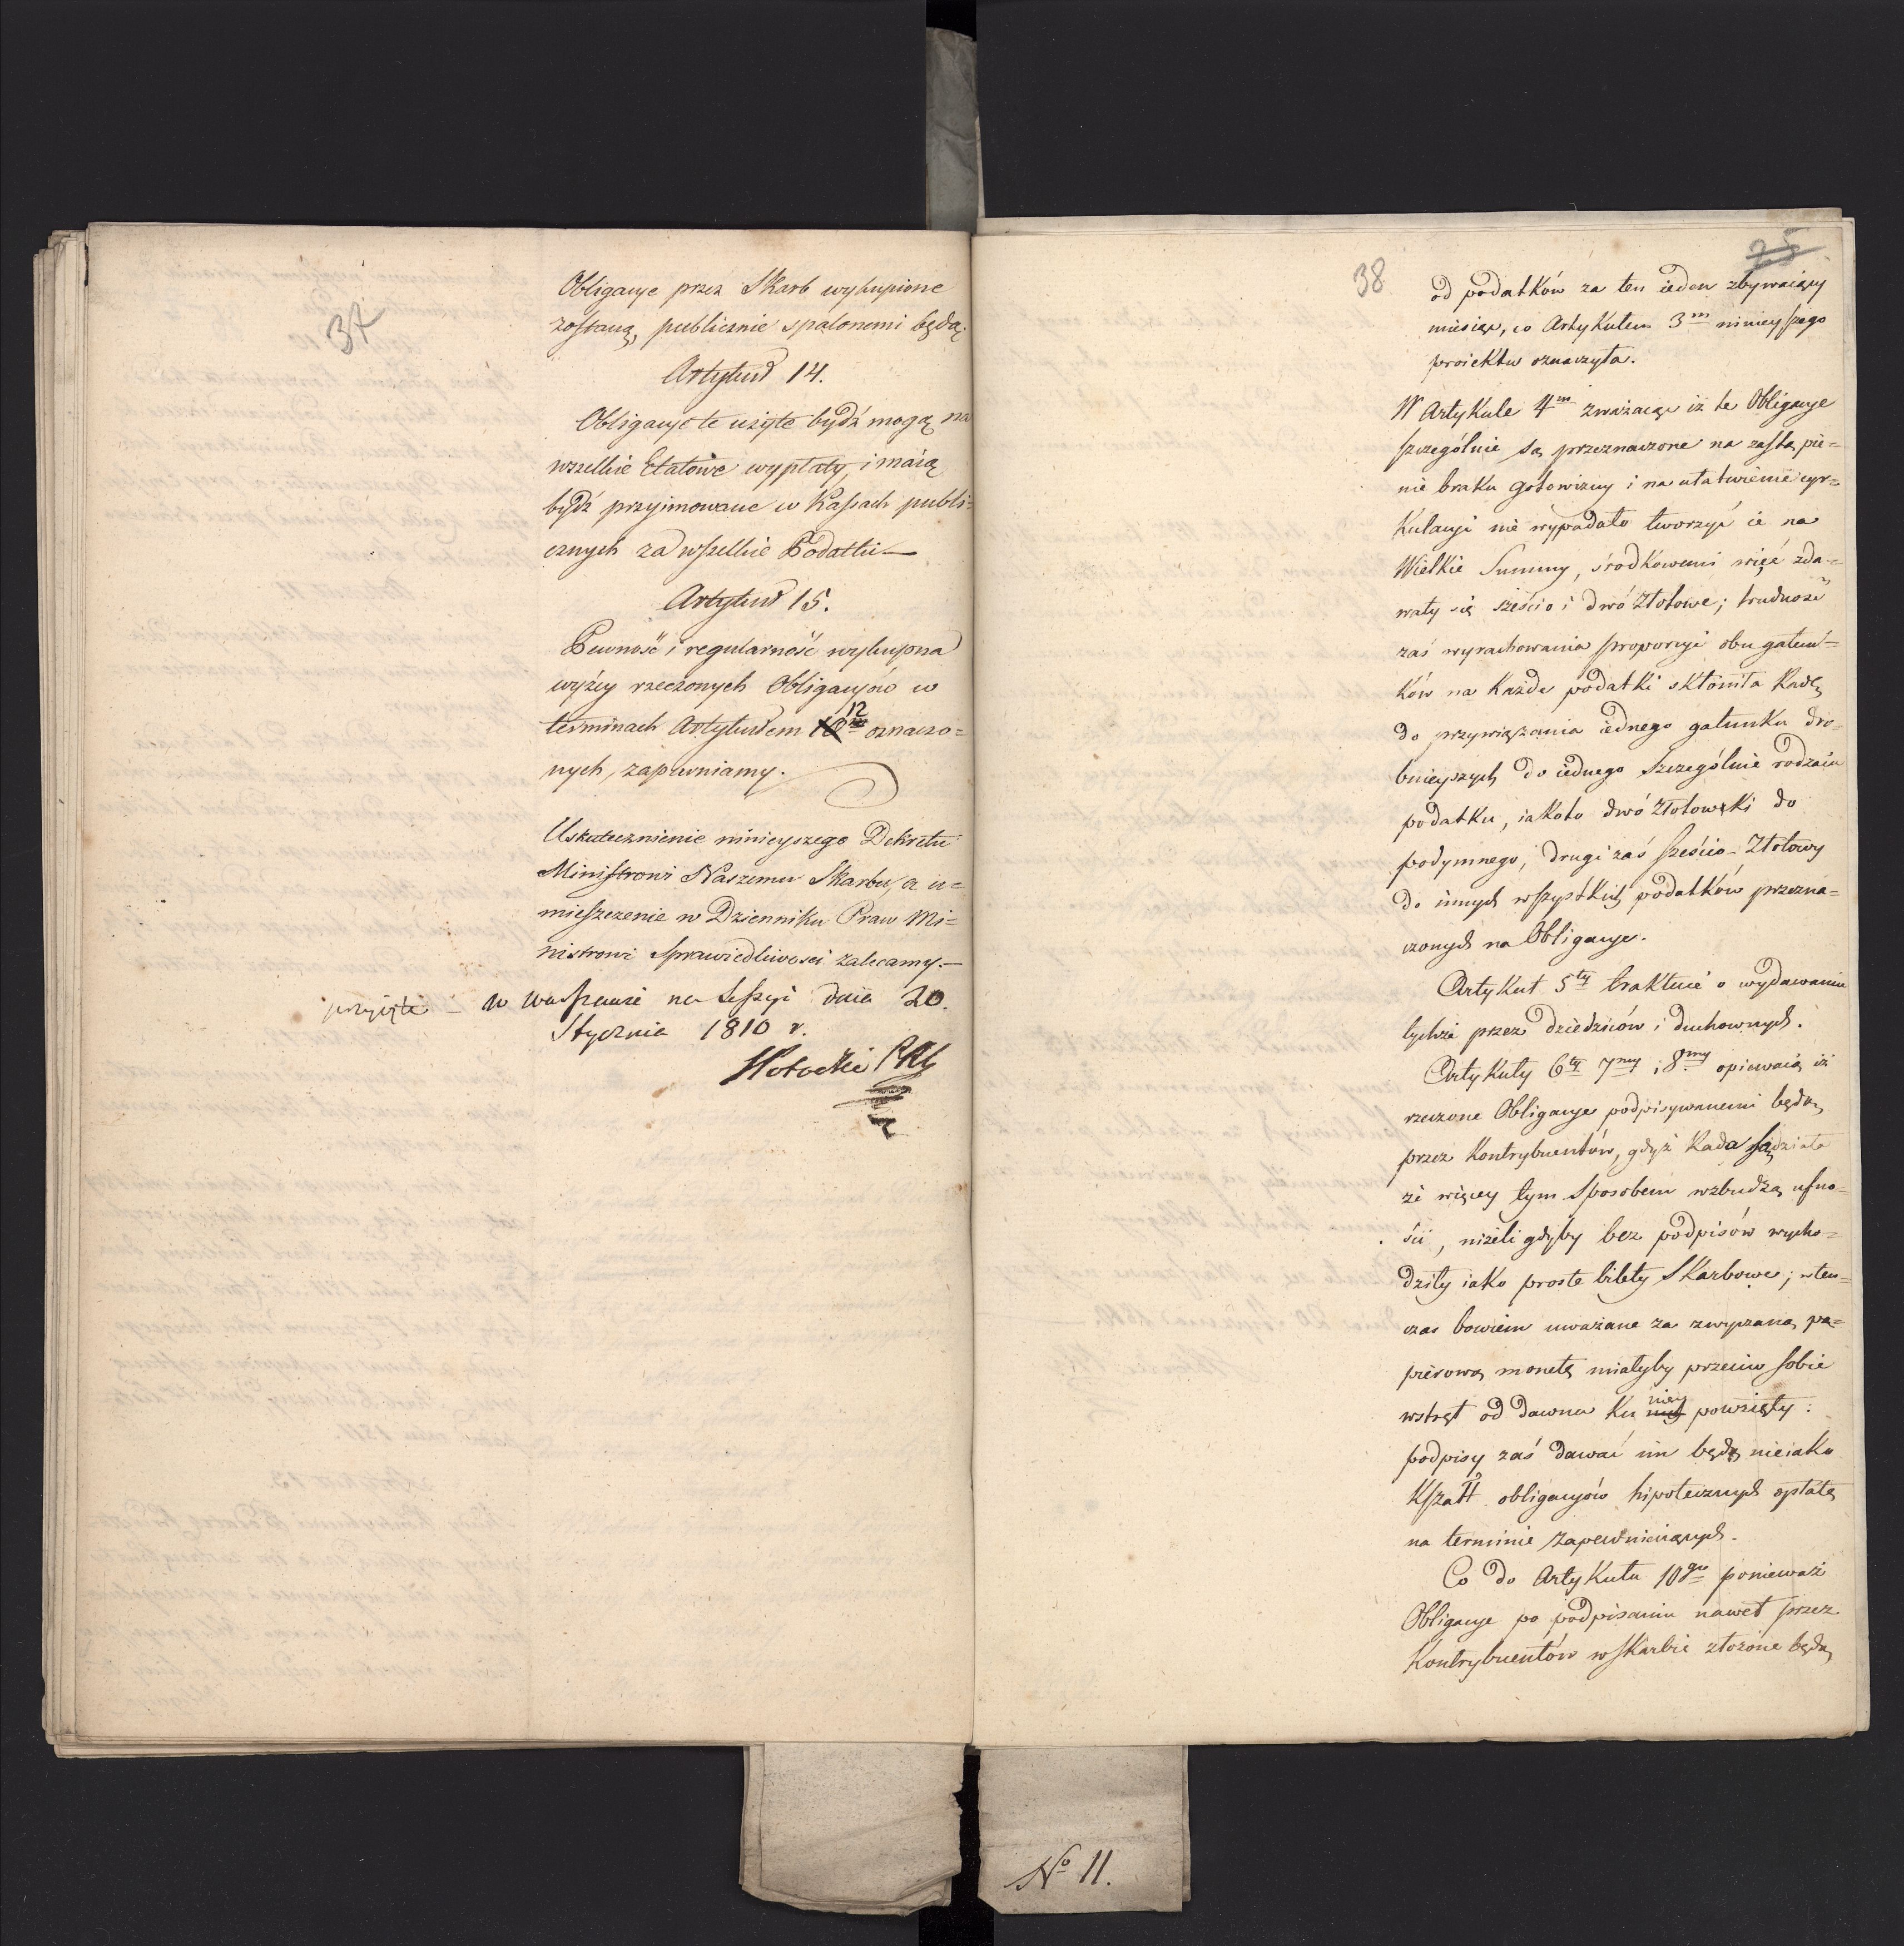 37
Obligacye przez Skarb wykupione
zostaną, publicznie spalonemi będą.
Artykuł 14.
Obligacye te użyte bydź mogą na
wszelkie Etatowe wypłaty, i maią
bydź przyimowane w Kassach publi=
cznych za wszelkie Podatki —
Artykuł 15.
Pewność i regularność wykupna
wyżey rzeczonych Obligacyów w
12
terminach Artykułem oznaczo=
nych, zapewniamy.
Uskutecznienie ninieyszego Dekretu
Ministrowi Naszemu Skarbu, a u=
mieszczenie w Dzienniku Praw Mi=
nistrowi Sprawiedliwosci zalecamy.—
przyięte — w Warszawie na Sessyi dnia 20.
Stycznia 1810 r.
38
25
od podatków za ten ieden zbywaiący
miesiąc, co Artykułem 3m ninieyszego
proiektu oznaczyła.
W Artykule 4m zważaiąc iż te Obligacye
szczególnie są przeznaczone na zastąpie=
nie braku gotowizny i na ułatwienie cyr=
kulacyi nie wypadało tworzyć ie na
Wielkie Summy, środkowemi więc zda=
wały się sześcio i dwó złotowe; trudność
zaś wyrachowania proporcyi obu gatun=
ków na każde podatki skłoniła Radę
do przywiązania iednego gatunku dro=
bnieyszych do iednego szczególnie rodzaiu
podatku, iakoto dwó złotowki do
podymnego, drugi zaś sześcio-złotowy
do innych wszystkich podatków przezna=
czonych na Obligacye.
Artykuł 5ty traktuie o wydawaniu
tychże przez dziedziców i duchownych.
Artykuły 6ty 7my i 8my opiewaią iż
rzeczone Obligacye podpisywanemi będą
przez Kontrybuentów, gdyż Rada sądziła
że więcey tym sposobem wzbudzą ufno=
ści, niżeli gdyby bez podpisów wycho=
dziły iako proste bilety Skarbowe; wten=
czas bowiem uważane za zwyczaną pa=
pierową monetę miałyby przeciw sobie
niey
wstręt od dawna ku powzięty:
podpisy zaś dawać im będą nieiako
kształt obligacyów hipotecznych opłatę
na terminie zapewniaiących.
Co do Artykułu 10go ponieważ
Obligacye po podpisaniu nawet przez
Kontrybuentów w Skarbie złożone będą
No 11.